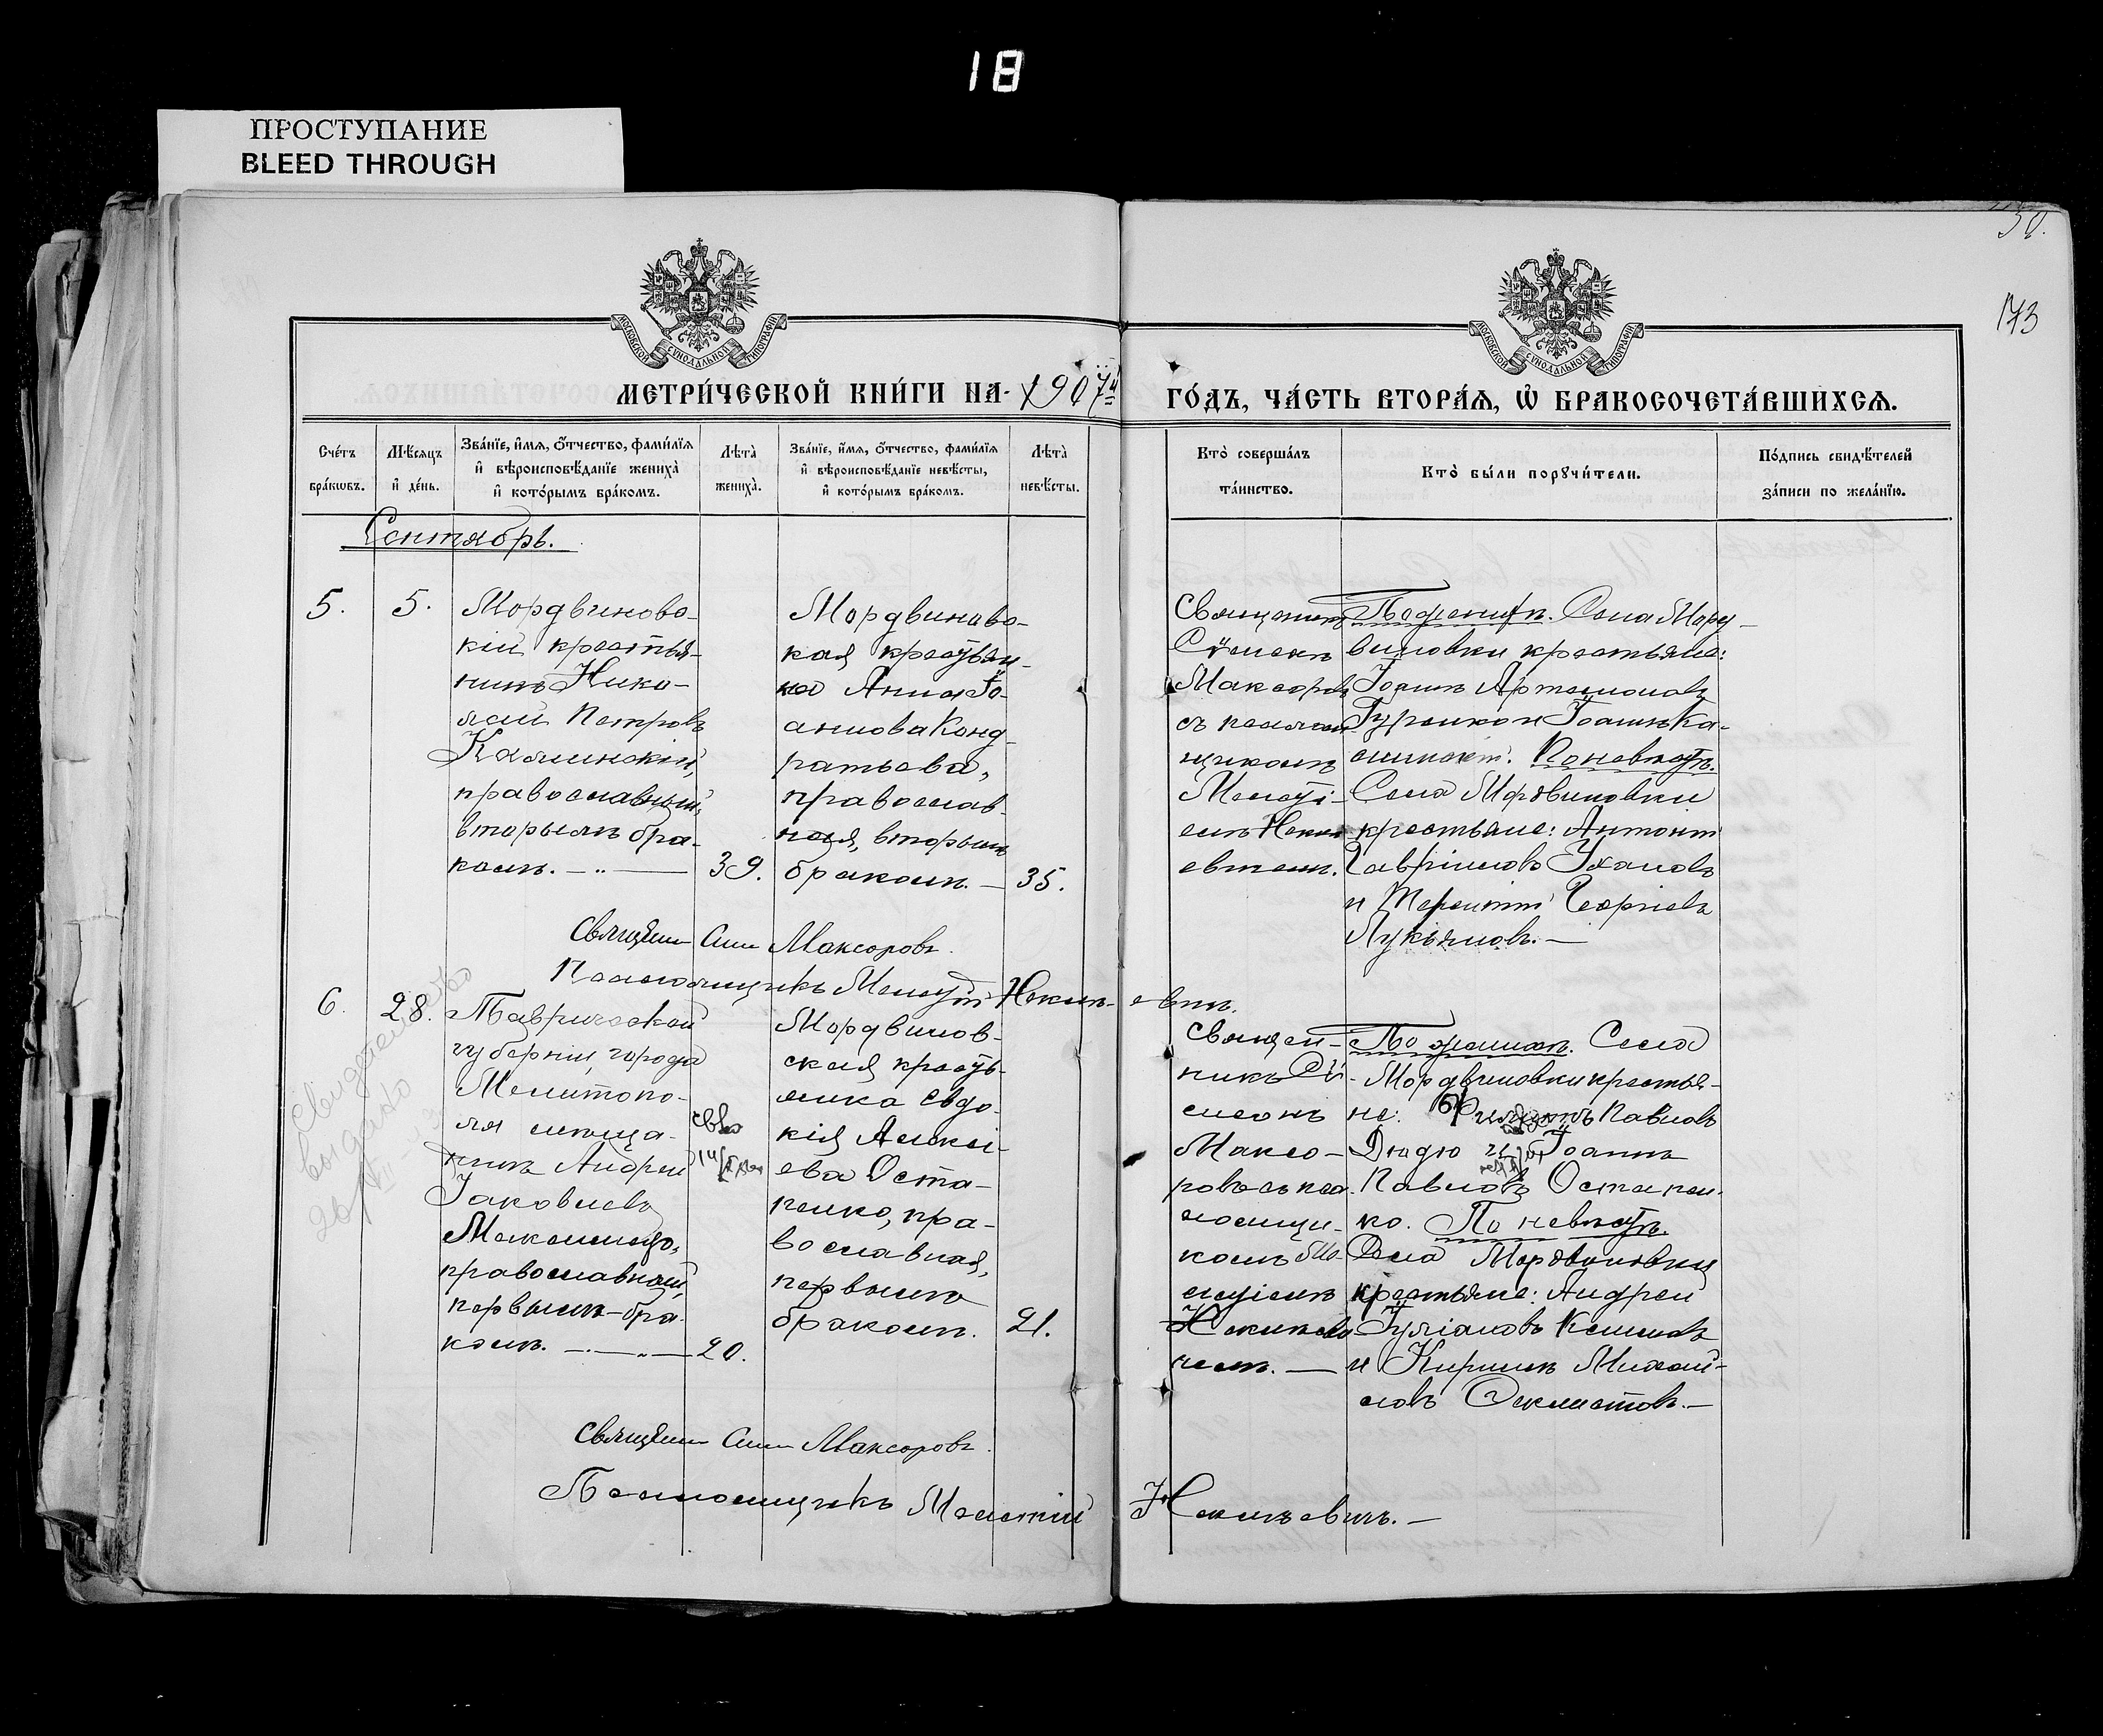 18
ПРОСТУПАНИЕ
BLEED THROUGH
30.
173
МОСКОВСКОЙ СѴНОДАЛЬНОЙ ТИПОГРАФІИ
МОСКОВСКОЙ СѴНОДАЛЬНОЙ ТИПОГРАФІИ
МЕТРИ́ЧЕСКОЙ КНИ́ГИ НА 1907й ГО́ДЪ, ЧА́СТЬ ВТОРА́Я, Ѡ҆ БРАКОСОЧЕТА́ВШИХСЯ.
Сче́тъ бра́кѡвъ.
Мѣ́сяцъ и҆ де́нь.
Зва́нїе, и҆́мя, ѻ҆́тчество, фами́лїя и҆ вѣроисповѣ́данїе жениха̀ и҆ кото́рымъ бра́комъ.
Лѣта̀ жениха̀.
Зва́нїе, и҆́мя, ѻ҆́тчество, фами́лїя и҆ вѣроисповѣ́данїе невѣ́сты, и҆ кото́рымъ бра́комъ.
Лѣта̀ невѣ́сты.
Кто̀ соверша́лъ та́инство.
Кто̀ бы́ли порꙋчи́тели.
По́дпись свидѣ́телей за́писи по жела́нїю.
Сентябрь.
5.
5.
Мордвиновс-
кій крестья-
нинъ Нико-
лай Петровъ
Калминскій,
православный,
вторымъ бра-
комъ. — „ —
39.
Мордвиновс-
кая крестьян-
ка Анна Іо-
аннова Конд-
ратьева,
православ-
ная, вторымъ
бракомъ. —
35.
Священникъ
Сѵмеонъ
Максоровъ
съ псалом-
щикомъ
Мелеті-
емъ
По женихѣ. Села Морд-
виновки крестьяне:
Іоаннъ Артемоновъ
Гуренко и Іоаннъ
По невѣстѣ.
Села Мордвиновки
крестьяне: Антоній
Гавріиловъ Ухановъ
и Терентій Георгіевъ
Лукьяновъ. —
Священн Сим Максоровъ.
Псаломщикъ Мелетій
6.
28.
Свидѣтельство
выдано
Таврической
губерніи, города
Мелитопо-
ля мѣща-
нинъ Андрей
Іаковлевъ
православный,
первымъ бра-
комъ. — „ —
20.
Мордвинов-
ская кресть-
янка Евдо-
кія Алексі-
ева Оста-
пенко, пра-
вославная,
первымъ
бракомъ.
21.
Священ-
никъ Сѵ-
меонъ
Максо-
ровъ съ пса-
ломщи-
комъ Ме-
летіемъ
По женихѣ. Села
Мордвиновки крестья-
не: Павловъ
Дюдю и Іоаннъ
Павловъ Остапен-
ко. По невѣстѣ.
Села Мордвиновки
крестьяне: Андрей
Іуліановъ Климовъ
и Кириллъ Михай-
ловъ Феклистовъ. —
Священн Сим Максоровъ.
Псаломщикъ Мелетій